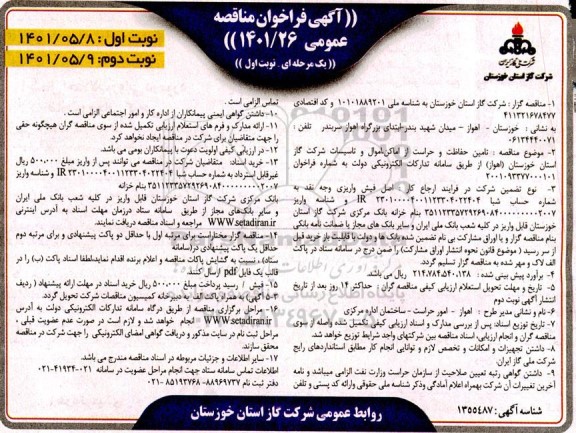 ((آگهی فراخوان مناقصه
عمومی ۱۴۰۱/۲۶))
((یک مرحله ای . نوبت اول))
نوبت اول : ۱۴۰۱/۰۵/۸
نوبت دوم: ۱۴۰۱/۰۵/۹
شرکت ملی گاز ایران
شرکت گاز استان خوزستان
۱- مناقصه گزار : شرکت گاز استان خوزستان به شناسه ملی ۱۰۱۰۱۸۸۹۲۰۱ و کد اقتصادی
۴۱۱۳۲۱۶۷۸۴۷۷
به نشانی : خوزستان - اهواز – میدان شهید بندر-ابتدای بزرگراه اهواز سربندر تلفن :
۰۶۱۳۴۴۴۰۰۷۱
۲- موضوع مناقصه : تامین حفاظت و حراست از اماکن،اموال و تاسیسات شرکت گاز
استان خوزستان (اهواز) از طریق سامانه تدارکات الکترونیکی دولت به شماره فراخوان
۲۰۰۱۰۹۳۳۷۷۰۰۰۱۰۱
۳- نوع تضمین شرکت در فرایند ارجاع کار : اصل فیش واریزی وجه نقد به
شماره حساب شبا IR ۲۳۰۱۰۰۰۰۴۰۰۱۱۲۳۳۰۴۰۲۲۴۰۴ و شناسه واریز
۳۵۱۱۲۳۳۵۷۲۹۲۶۹۰۸۴۰۰۰۰۰۰۰۰۰۰۲۰۰۷ بنام خزانه بانک مرکزی شرکت گاز استان
خوزستان قابل واریز در کلیه شعب بانک ملی ایران و سایر بانک های مجاز یا ضمانت نامه بانکی
بنام مناقصه گزار و یا اوراق مشارکت بی نام تضمین شده
از سر رسید ( موضوع قانون نحوه انتشار اوراق مشارکت) را ضمن درج در سامانه ستاد در پاکت
الف لاک و مهر شده به مناقصه گزار تسلیم گردد.
۴- برآورد پیش بینی شده : ۲۱۴.۷۸۴.۵۴۰.۱۳۸ ریال می باشد.
۵- تاریخ و مهلت تحویل استعلام ارزیابی کیفی مناقصه گران : حداکثر ۱۴ روز بعد از تاریخ
انتشار آگهی نوبت دوم
۶- نام و نشانی مدیر طرح : اهواز - امور حراست - ساختمان اداره مرکزی
۷- تاریخ توزیع اسناد: پس از بررسی مدارک و اسناد ارزیابی کیفی تکمیل شده واصله از سوی
مناقصه گران و انجام ارزیابی، اسناد مناقصه بین شرکتهای واجد شرایط توزیع خواهد شد.
۸- داشتن تجهیزات و امکانات و تخصص لازم و توانایی انجام کار مطابق استانداردهای رایج
شرکت ملی گاز ایران.
۹- داشتن گواهی رتبه تعیین صلاحیت از سازمان حراست وزارت نفت الزامی میباشد و نامه
آخرین تغییرات آن شرکت بهمراه اعلام آمادگی وذکر شناسه ملی حقوقی وارائه کد پستی و تلفن
تماس الزامی است.
۱۰- داشتن گواهی ایمنی پیمانکاران از اداره کار و امور اجتماعی الزامی است.
۱۱- ارائه مدارک و فرم های استعلام ارزیابی تکمیل شده از سوی مناقصه گران هیچگونه حقی
را جهت متقاضیان برای شرکت در مناقصه ایجاد نخواهد کرد.
۱۲- در ارزیابی کیفی اولویت دعوت با پیمانکاران بومی می باشد.
۱۳- خرید اسناد: متقاضیان شرکت در مناقصه می توانند پس از واریز مبلغ ۵۰۰,۰۰۰ ریال
غیرقابل استرداد به شماره حساب شبا IR ۲۳۰۱۰۰۰۰۴۰۰۱۱۲۳۳۰۴۰۲۲۴۰۴ و شناسه واریز
۳۵۱۱۲۳۳۵۷۲۹۲۶۹۰۸۴۰۰۰۰۰۰۰۰۰۰۲۰۰۷ بنام خزانه
بانک مرکزی شرکت گاز استان خوزستان قابل واریز در کلیه شعب بانک ملی ایران
و سایر بانک‌های مجاز از طریق سامانه ستاد درزمان مهلت اسناد به آدرس اینترنتی
WWW.setadiran.ir مراجعه و اسناد دریافت نمایند.
۱۴- مناقصه گزار مختاراست برای مرتبه اول با حداقل دو پاکت پیشنهادی و برای مرتبه دوم
حداقل یک پاکت پیشنهادی در(سامانه
ستاد ، نسبت به گشایش پاکات مناقصه و اعلام برنده اقدام نمایدلطفا اسناد پاکت (ب) را در
قالب یک فایل pdf ارسال کنند.
۱۵- فیش / رسید پرداخت مبلغ ۵۰۰.۰۰۰ ریال خرید اسناد در مهلت ارائه پیشنهاد ( ردیف
۵-۳ آگهی) به همراه پاکت الف به دبیرخانه کمیسیون مناقصات شرکت تحویل گردد.
۱۶- مراحل برگزاری مناقصه از طریق درگاه سامانه تدارکات الکترونیکی دولت به آدرس
WWW.setadiran.ir انجام خواهد شد و لازم است در صورت عدم عضویت قبلی ،
مراحل ثبت نام در سایت مذکور و دریافت گواهی امضای الکترونیکی را جهت شرکت در مناقصه
محقق سازند.
۱۷- سایر اطلاعات و جزئیات مربوطه در اسناد مناقصه مندرج می باشد.
اطلاعات تماس سامانه ستاد جهت انجام مراحل عضویت در سامانه ۴۱۹۳۴-۰۲۱
دفتر ثبت نام ۸۸۹۶۹۷۳۷ - ۸۵۱۹۳۷۶۸-۰۲۱
شناسه آگهی: ۱۳۵۵۴۸۷
روابط عمومی شرکت گاز استان خوزستان